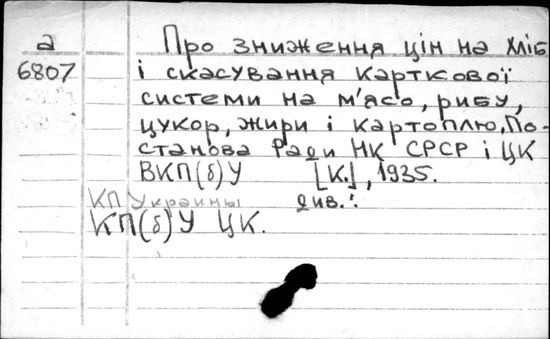 а
6807
Про зниження цін на хліб
і скасування карткової
системи на м'ясо, рибу,
цукор, жири і картоплю, По-
станова Ради НК СРСР і ЦК
ВКП(б)У [К.], 1935.
КП Украины див.:
КП(б)У ЦК.